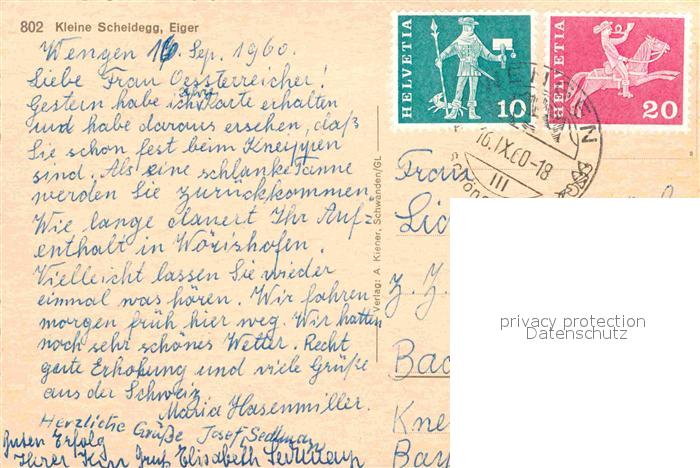 802 Kleine Scheidegg, Eiger
Wengen 16. Sep. 1960.
Liebe Frau Oessterreicher!
Gestern habe ich Ihre Karte erhalten
und habe daraus ersehen, daß
Sie schon fest beim Kneippen
sind. Als eine schlanke Tanne
werden Sie zurückkommen.
Wie lange dauert Ihr Auf=
enthalt in Wörishofen.
Vielleicht lassen Sie wieder
einmal was hören. Wir fahren
morgen früh hier weg. Wir hatten
noch sehr schönes Wetter. Recht
gute Erhohung und viele Grüße
aus der Schweiz
Maria Hasenmiller.
Herzliche Grüße Josef Sedlmair
Guten Erfolg
Ihrer Kur Gruß Elisabeth Sedlmair
Verlag: A. Kiener, Schwanden/GL
HELVETIA 10
HELVETIA 20
WENGEN
16.IX.60-18
III
Frau
Z. Z.
privacy protection
Datenschutz